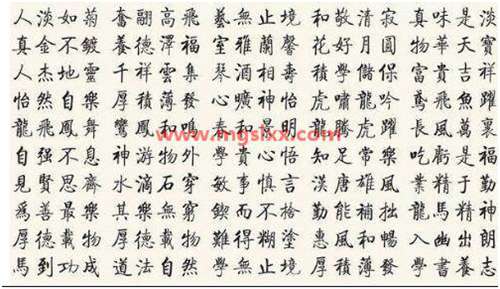 人淡如菊 奮翮高飛 藝無止境 和敬清寂 真味是淡
真金不鍍 養德澤福 室雅蘭馨 花好月圓 物華天寶
人杰地靈 千祥雲集 琴酒相壽 學儲保 富貴吉祥
怡然自樂 厚積薄發 心曠神怡 虎嘯龍吟 鳶飛魚躍
龍飛鳳舞 鸞鳳和鳴 和景明 龍騰虎躍 長風萬裏
www.mgslxx.com
自強不息 神游物外 學貴心悟 知足常樂 吃虧是福
見賢思齊 水滴石穿 敏事慎言 漢唐雄風 業精于勤
為善最樂 其樂無窮 鍥而不捨 勤能補拙 龍馬精神
厚德載物 厚德載物 難得糊塗 惠風和暢 入幽出朗
馬到功成 道法自然 學無止境 厚積薄發 學書養志